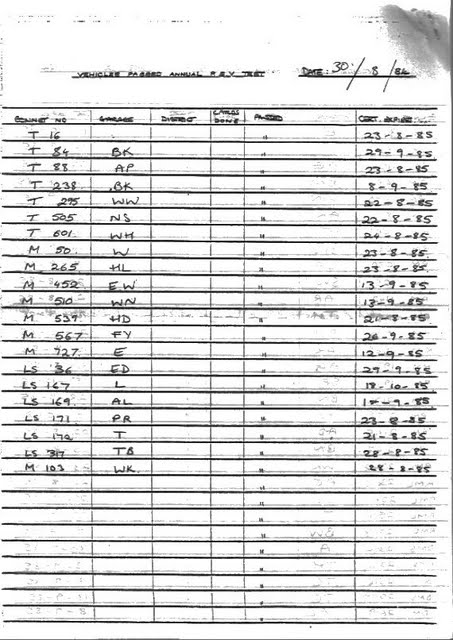 VEHICLES PASSED ANNUAL P.S.V TEST DATE: 30/8/84
BONNET NO GARAGE DISTRICT CARDS DONE PASSED CERT. EXPIRES
T 16 " 23-8-85
T 84 BK 29-9-85
T 88 AP 23-8-85
T 238 BK 8-9-85
T 295 WW 22-8-85
T 505 NS 22-8-85
T 601 WH 24-8-85
M 50 W " 23-8-85
M 265 HL " 23-8-85
M 452 EW " 13-9-85
M 510 WN " 13-9-85
M 539 HD " 21-8-85
M 567 FY " 26-9-85
M 727 E " 12-9-85
LS 36 ED " 29-9-85
LS 167 L " 18-10-85
LS 169 AL " -9-85
LS 171 PR " 23-8-85
LS 172 T " 21-8-85
LS 317 TB " 28-8-85
M 103 WK " 28-8-85